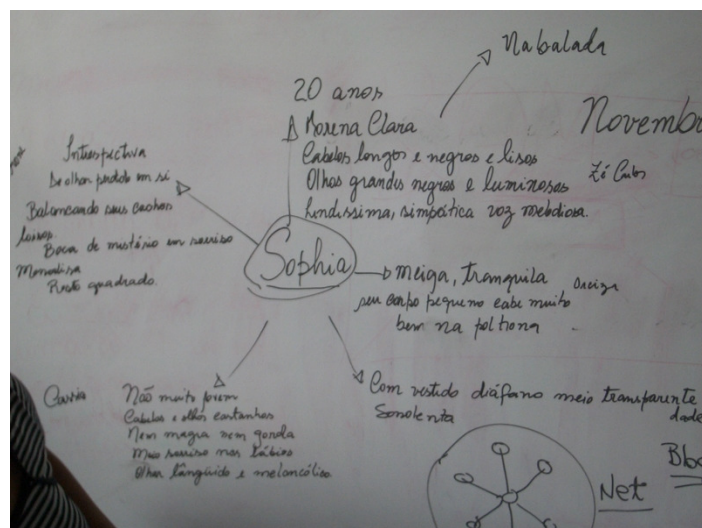 Na balada
20 anos
Morena Clara
Cabelos longos e negros e lisos
Olhos grandes negros e luminosos
lindíssima, simpática voz melodiosa.
Novembro
Introspectiva
De olhar perdido em si
Balanceando seus cachos
loiros.
Boca de mistério em sorriso
Monalisa
Rosto quadrado.
Sophia
meiga, tranquila
seu corpo pequeno cabe muito
bem na poltrona
Cassia
Não muito jovem
Cabelos e olhos castanhos
Nem magra nem gorda
Meio sorriso nos lábios
Olhar lânguido e melancólico.
Com vestido diáfano meio transparente
Sonolenta
dade
Net